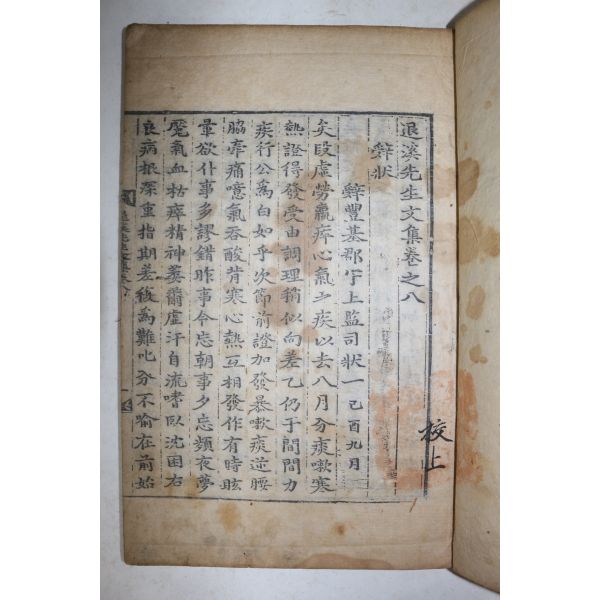 退溪先生文集卷之八
辭狀
辭豐基郡守上監司狀一 己酉九月
矣段虛勞羸瘁心氣之疾以去八月分痰嗽寒
熱證得發受由調理稍似向差乙仍于間間力
疾行公爲白如乎次節前證加發暴嗽痰逆腰
脇牽痛噫氣吞酸背寒心熱互相發作有時眩
暈欲仆事多謬錯昨事今忘朝事夕忘頻夜夢
魘氣血枯瘁精神萎薾虛汗自流嗜臥沈困右
良病根深重指期差復爲難叱分不喩在前始
校上